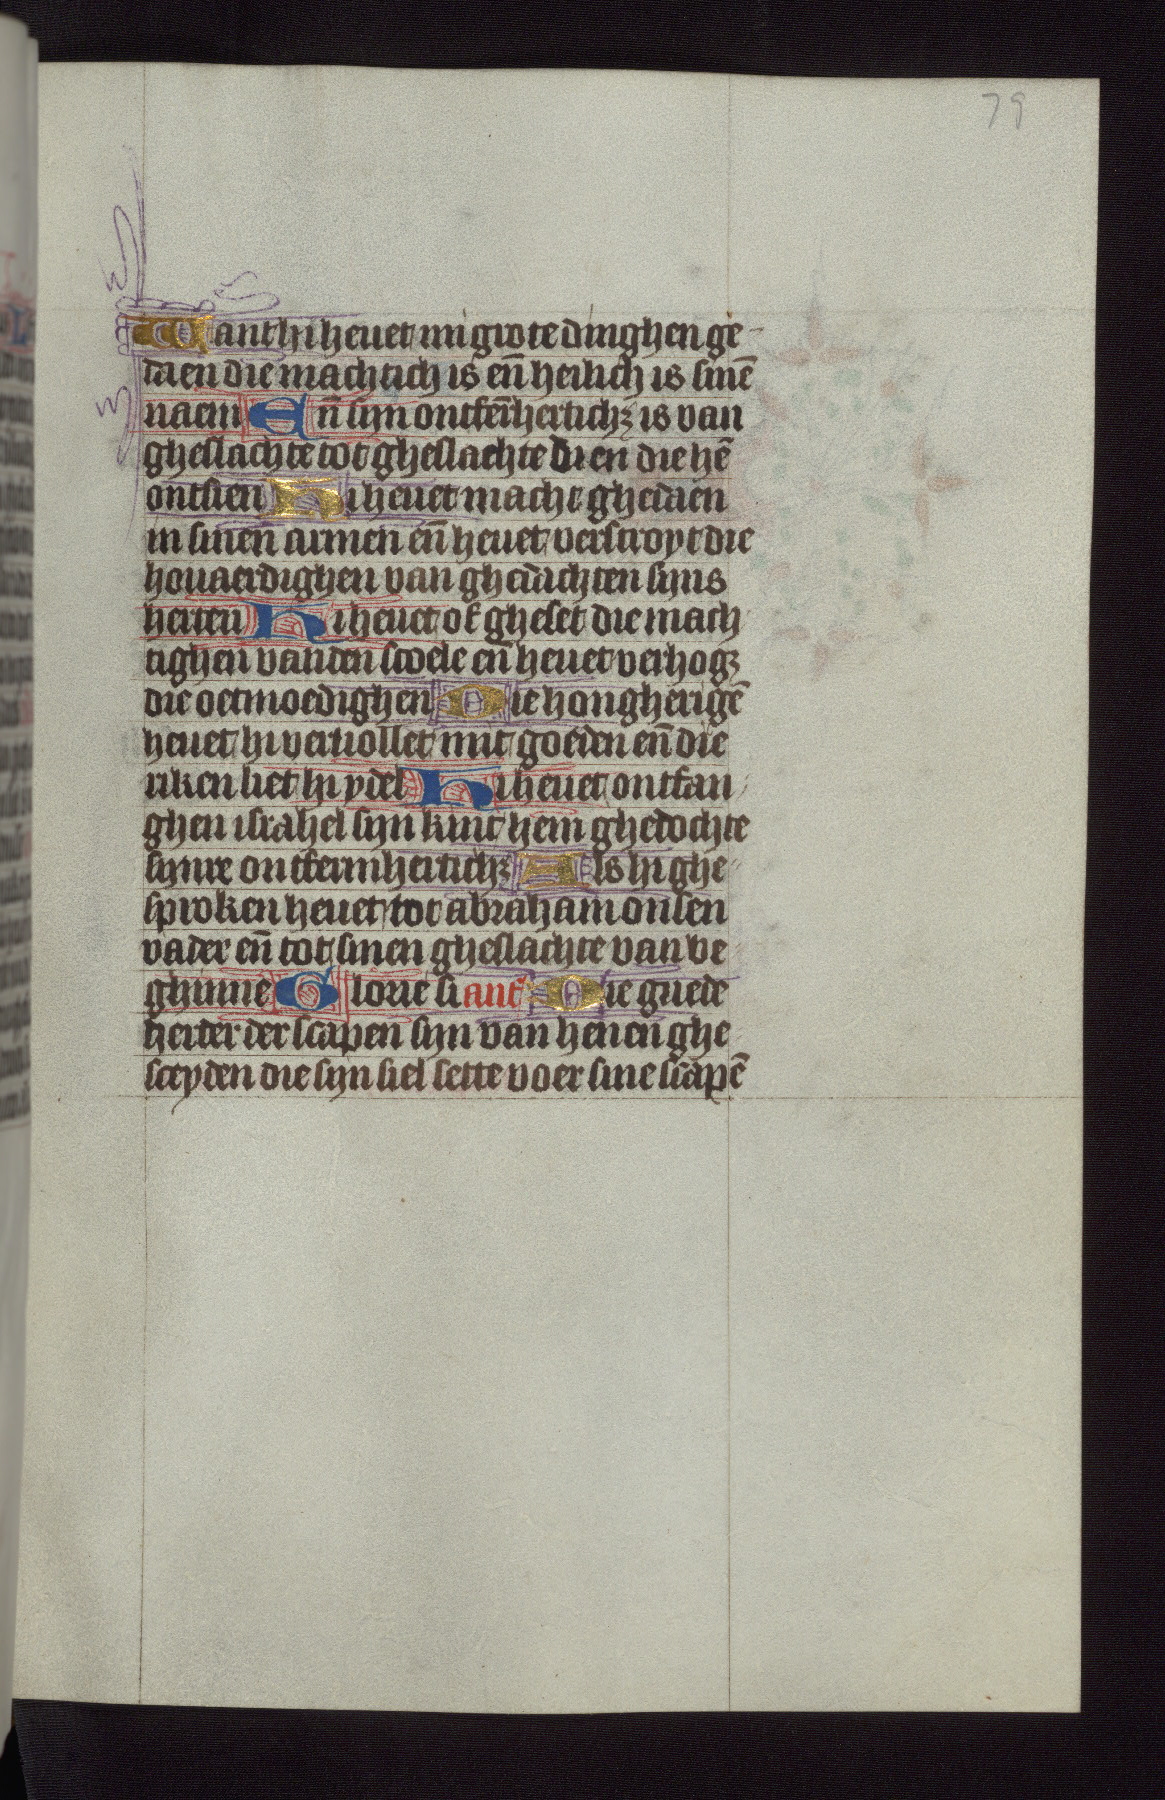 79
Want hi heuet mi grote dinghen ge-
daen die machtich is en̄ heilich is sinē
naem En̄ sijn ontfērhertichꝫ is van
gheslachte tot gheslachte Dien die hē
ontsien Hi heuet macht ghedaen
in sinen armen en̄ heuet verstroyt die
houaerdighen van ghedachten sijns
herten Hi heuet of gheset die mach
tighen vanden stoele en̄ heuet verhogꝫ
die oetmoedighen Die hongherigē
heuet hi veruollet mit goeden en̄ die
riken liet hi ydel Hi heuet ontfan
ghen israhel sijn kint hem ghedochte
sijnre ontfermhertichꝫ Als hi ghe
sproken heuet tot abraham onsen
vader en̄ tot sinen gheslachte van be
ghinne Glorie si ant̄ Die guede
herter der scapen sijn van henen ghe
sceyden die sijn siel sette voer sine scapē